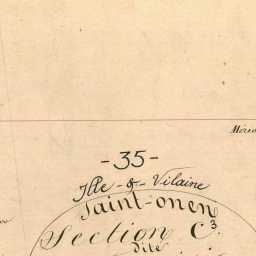 -35-
Ille-&-Vilaine
Saint-onen
Section C.3
dite